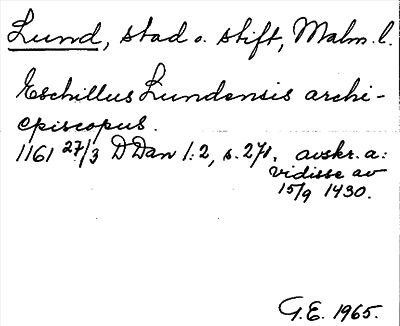 Lund, stad o. stift, Malm. l.
Eschillus Lundensis archi-
episcopus.
1161 27/3 D Dan 1:2, s. 271. avskr. a:
vidisse av
15/9 1430.
G.E. 1965.